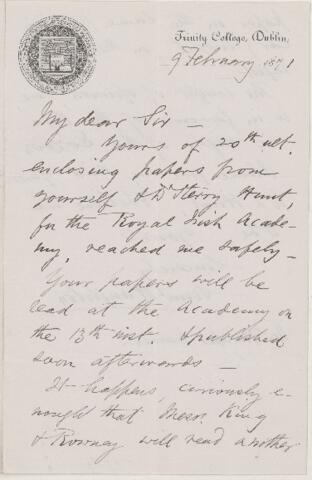 Trinity College, Dublin,
9 February 1871
My dear Sir —
Yours of 20th ult.
enclosing papers from
yourself & Dr Sterry Hunt,
for the Royal Irish Acade-
my, reached me safely —
Your papers will be
read at the Academy on
the 13th inst. & published
soon afterwards —
It happens, curiously e-
nough that Messrs. King
& Rowney will read another